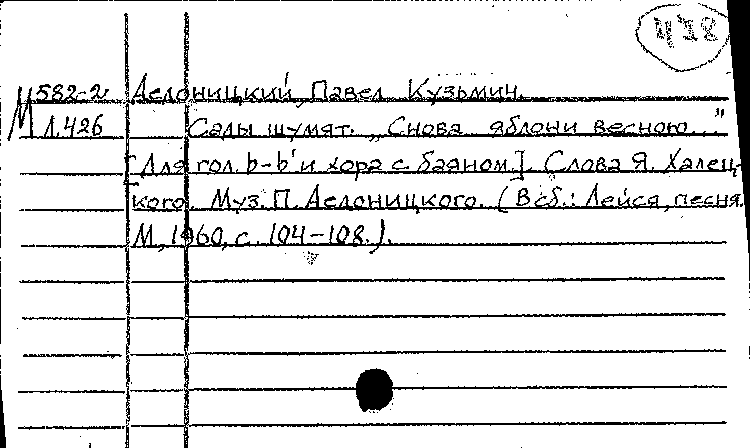 478
М 582-2 Аедоницкий, Павел Кузьмин.
Л.426 Сады шумят. „Снова яблони весною..."
[Для гол. b-b' и хора с баяном.] Слова Я. Халец-
кого. Муз. П. Аедоницкого. (В сб.: Лейся, песня.
М., 1960, с. 104-108.).